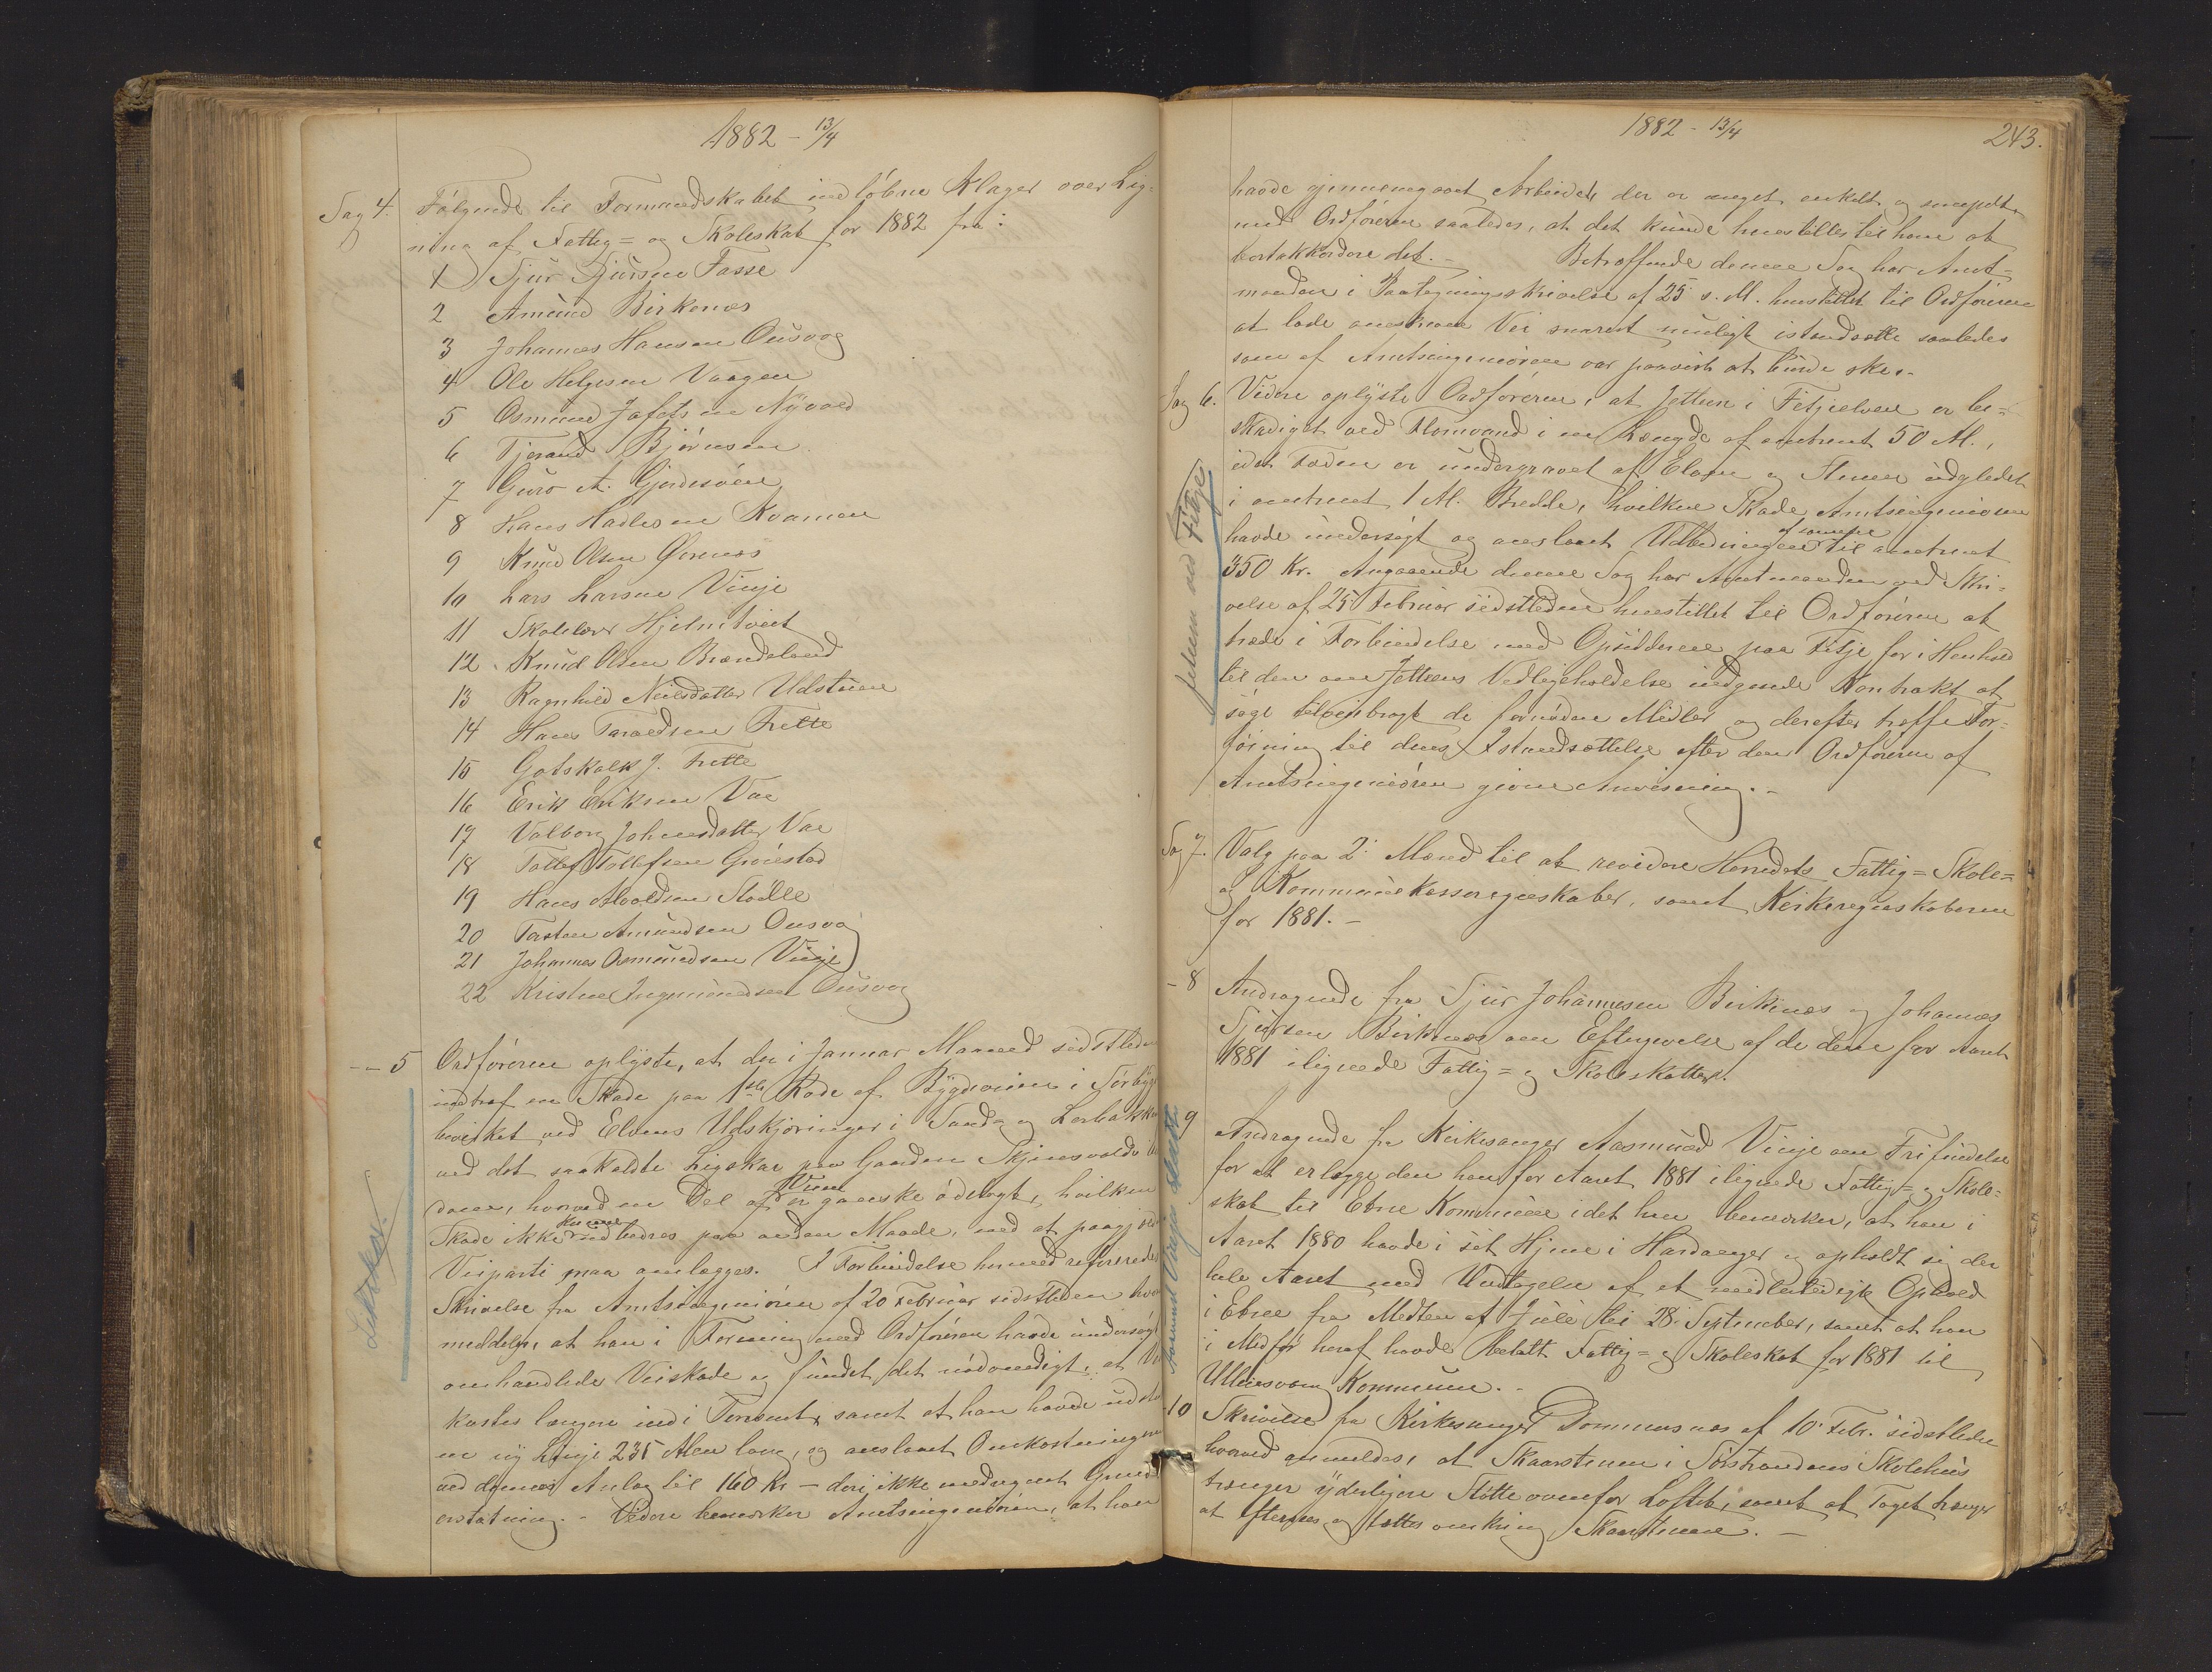 1882 - 13/4
Sag 4. Følgende til Formandskabet indløbne Klager over Lig-
ning af Fattig= og Skoleskat for 1882 fra:
1 Sjur Sjursen Fosse
2 Amund Birkenæs
3 Johannes Hansen Ousvog
4 Ole Helgesen Vaagen
5 Osmund Jafetsen Nyvold
6 Tjerand Bjørnsen
7 Guro A. Gjerdesøen
8 Hans Hadlesen Kvamen
9 Knud Olsen Ørenæs
10 Lars Larsen Vinje
11 Skolelærer Hjelmtveit
12 Knud Olsen Brændeland
13 Ragnhild Neilsdatter Udstuen
14 Hans Taraldsen Frette
15 Gotskalk J. Frette
16 Erik Eriksen Vae
17 Valborg Johnesdatter Vae
18 Tollef Tollefsen Grønstad
19 Hans Alvoldsen Stødle
20 Torsten Amundsen Ousvog
21 Johannes Osmundsen Vinje
22 Kristen Ingmundsen Ousvog
-- 5 Ordføreren oplyste, at der i Januar Maaned sidstleden
indtraf en Skade paa 1ste Rode af Bygdeveien i Sørbygd
bevirket ved Elvens Udskjæringer i Sand= og Lerbakken
ved det saakaldte Ligskar paa Gaarden Skjensvolds
hvorved en Del af Veien er ganske ødelagt, hvilken
Skade ikke kunne udbedres paa anden Maade, end at paagjæld
Veiparti maa omlægges. I Forbindelse hermed refereredes
Skrivelse fra Amtsingeniøren af 20 Februar sidstleden hvori
meddeles, at han i Forening med Ordføreren havde undersøgt
omhandlede Veiskade og fundet det nødvendigt, at Veien
kastes længere ind i Terrænet, samt at han havde udstuk
en ny Linje 235 Alen lang, og anslaaet Omkostningerne
ved dennes Anlæg til 160 Kr - deri ikke medregnet Grund
erstatning. - Videre bemærker Amtsingeniøren, at han
Ligskar.
1882 - 13/4
243.
havde gjennemgaaet Arbeidet, der er meget enkelt, og
med Ordføreren saaledes, at det kunde henstilles til ham at
bortakkordere det. - Betræffende denne Sag har Amt-
manden i Paategningsskrivelse af 25 s. M. henstillet til Ordføreren
at lade omskrevne Vei snarest muligt istandsætte saaledes
som af Amtsingeniøren var paavist at burde ske. -
Sag 6. Videre oplyste Ordføreren, at Jetteen i Fitjeelven er be-
skadiget ved Flomvand i en Længde af omtrent 50 M.,
idet Foden er undergravet af Elven og Stenen udgledet
i omtrent 1 M. Bredde, hvilken Skade Amtsingeniøren
havde undersøgt og anslaaet Udbedringen af samme til omtrent
350 Kr. Angaaende denne Sag har Amtmanden ved Skri-
velse af 25 Februar sidstleden henstillet til Ordføreren at
træde i Forbindelse med Opsidderne paa Fitje for i Henhold
til den om Jetteens Vedligeholdelse indgaaede Kontrakt at
søge tilveiebragt de fornødne Midler og derefter træffe For-
føining til dens Istandsættelse efter den Ordføreren af
Amtsingeniøren givne Anvisning. -
ved Fitje
Sag 7. Valg paa 2 Mænd til at revidere Herredets Fattig= Skole=
og Kommunekasseregnskaber, samt Kirkeregnskaberne
for 1881. -
- 8 Andragende fra Sjur Johannesen Birkenæs og Johannes
Sjursen Birkenæs om Eftergivelse af de dem for Aaret
1881 ilignede Fattig= og Skoleskatter.
9 Andragende fra Kirkesanger Aasmund Vinje om Frifindelse
for at erlægge den ham for Aaret 1881 ilignede Fattig= og Skole=
skat til Etne Kommune idet han bemærker, at han i
Aaret 1880 havde i sit Hjem i Hardanger og opholdt sig der
hele Aaret med Undtagelse af et midlertidigt Ophold
i Etne fra Midten af Juli til 28 September, samt at han
i Medfør heraf havde betalt Fattig= og Skoleskat for 1881 til
Ullensvang Kommune. -
Aasmund Vinjes skat
10 Skrivelse fra Kirkesanger Dommersnæs af 10 Febr. sidstleden
hvorved anmeldes, at Skaarstenen i Sørstrandens Skolehus
trænger yderligere Støtte ovenfor Loftet, samt at Taget trænger
at eftersees og tættes omkring Skaarstenen. -